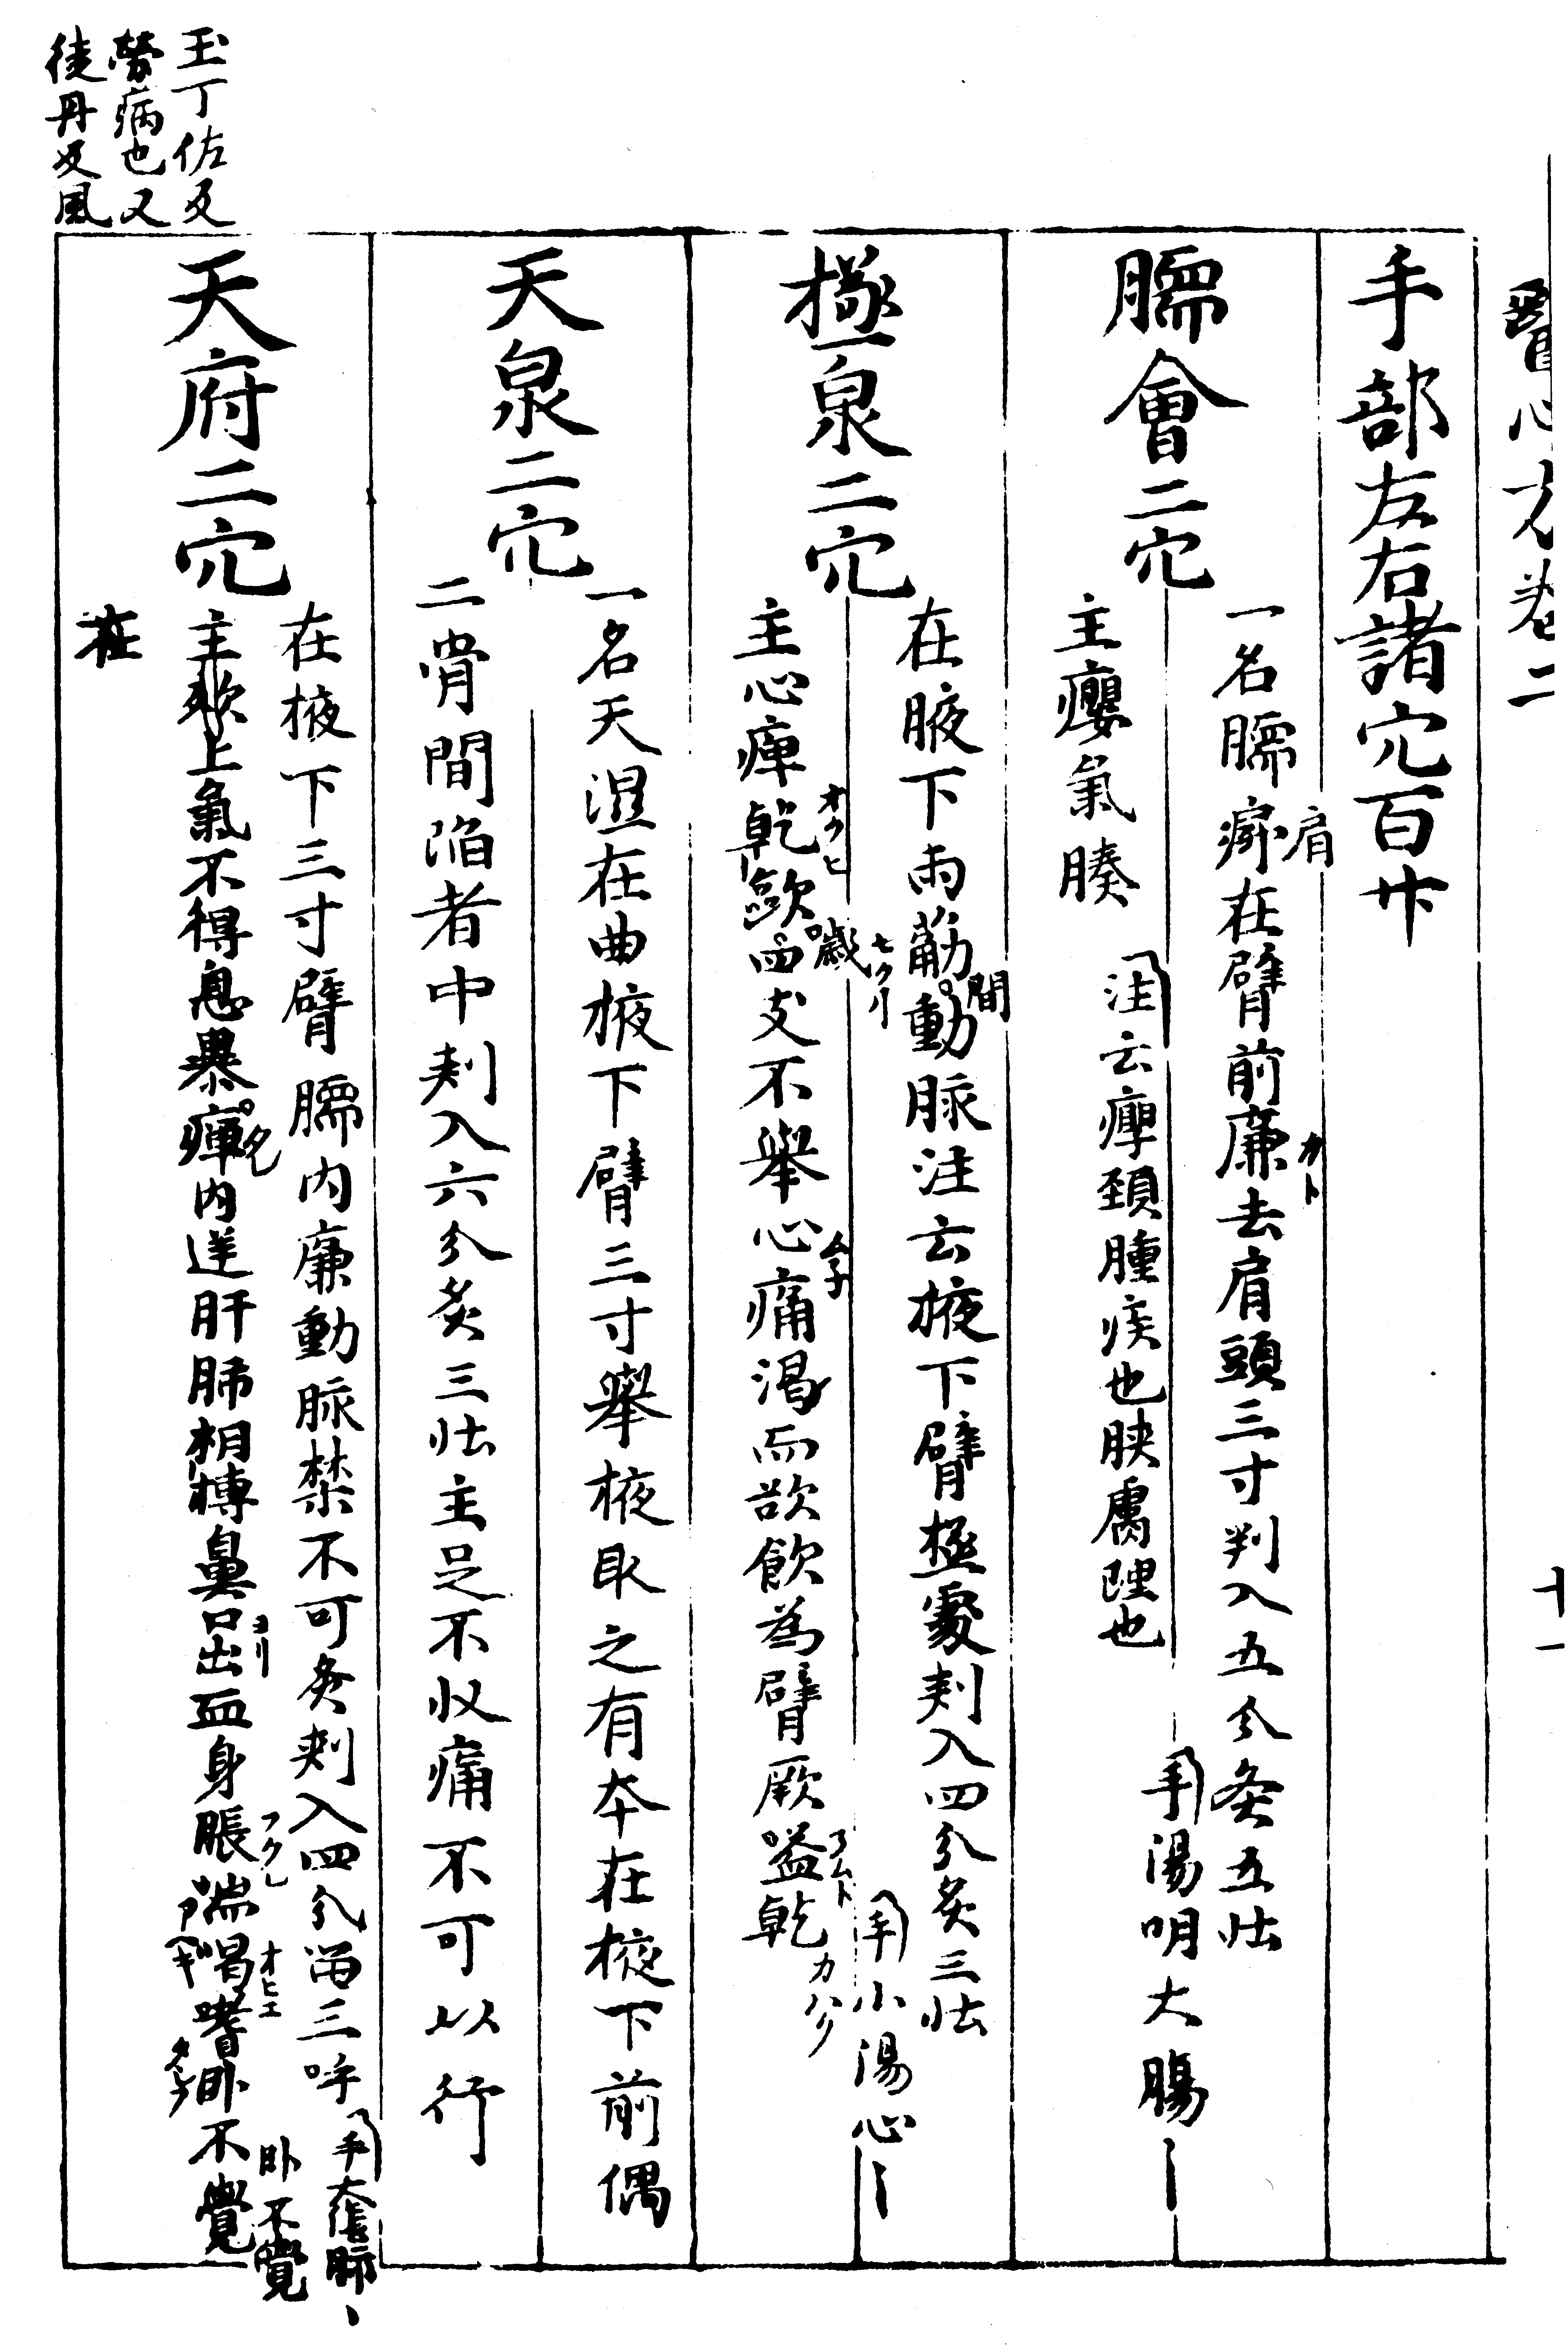 醫心方卷二
十一
手部左右諸穴百廿
臑會二穴
一名臑窌在臂前廉去肩頭三寸刺入五分灸五壯
肩
カト
主癭氣腠
注云癭頚腫疾也腠膚理也
手湯明大腸
極泉二穴
在腋下兩筋動脉注云掖下臂極處刺入四分灸三壯
間
手小湯心
主心痺乾歐四支不舉心痛渴而欲飲為臂厥嗌乾
噦
カハク
天泉二穴
一名天湿在曲掖下臂三寸舉掖取之有本在掖下前偶
二骨間陷者中刺入六分灸三壯主足不収痛不可以行
天府二穴
在掖下三寸臂臑内廉動脉禁不可灸刺入四分留三呼
主欬上氣不得息暴痺内逆肝肺相槫鼻口出血身脹喘喝嗜卧不覺
ヨリ
フクレ
オヒエ
卧不覺
在
玉丁佐反
勞病也又
徒丹反風